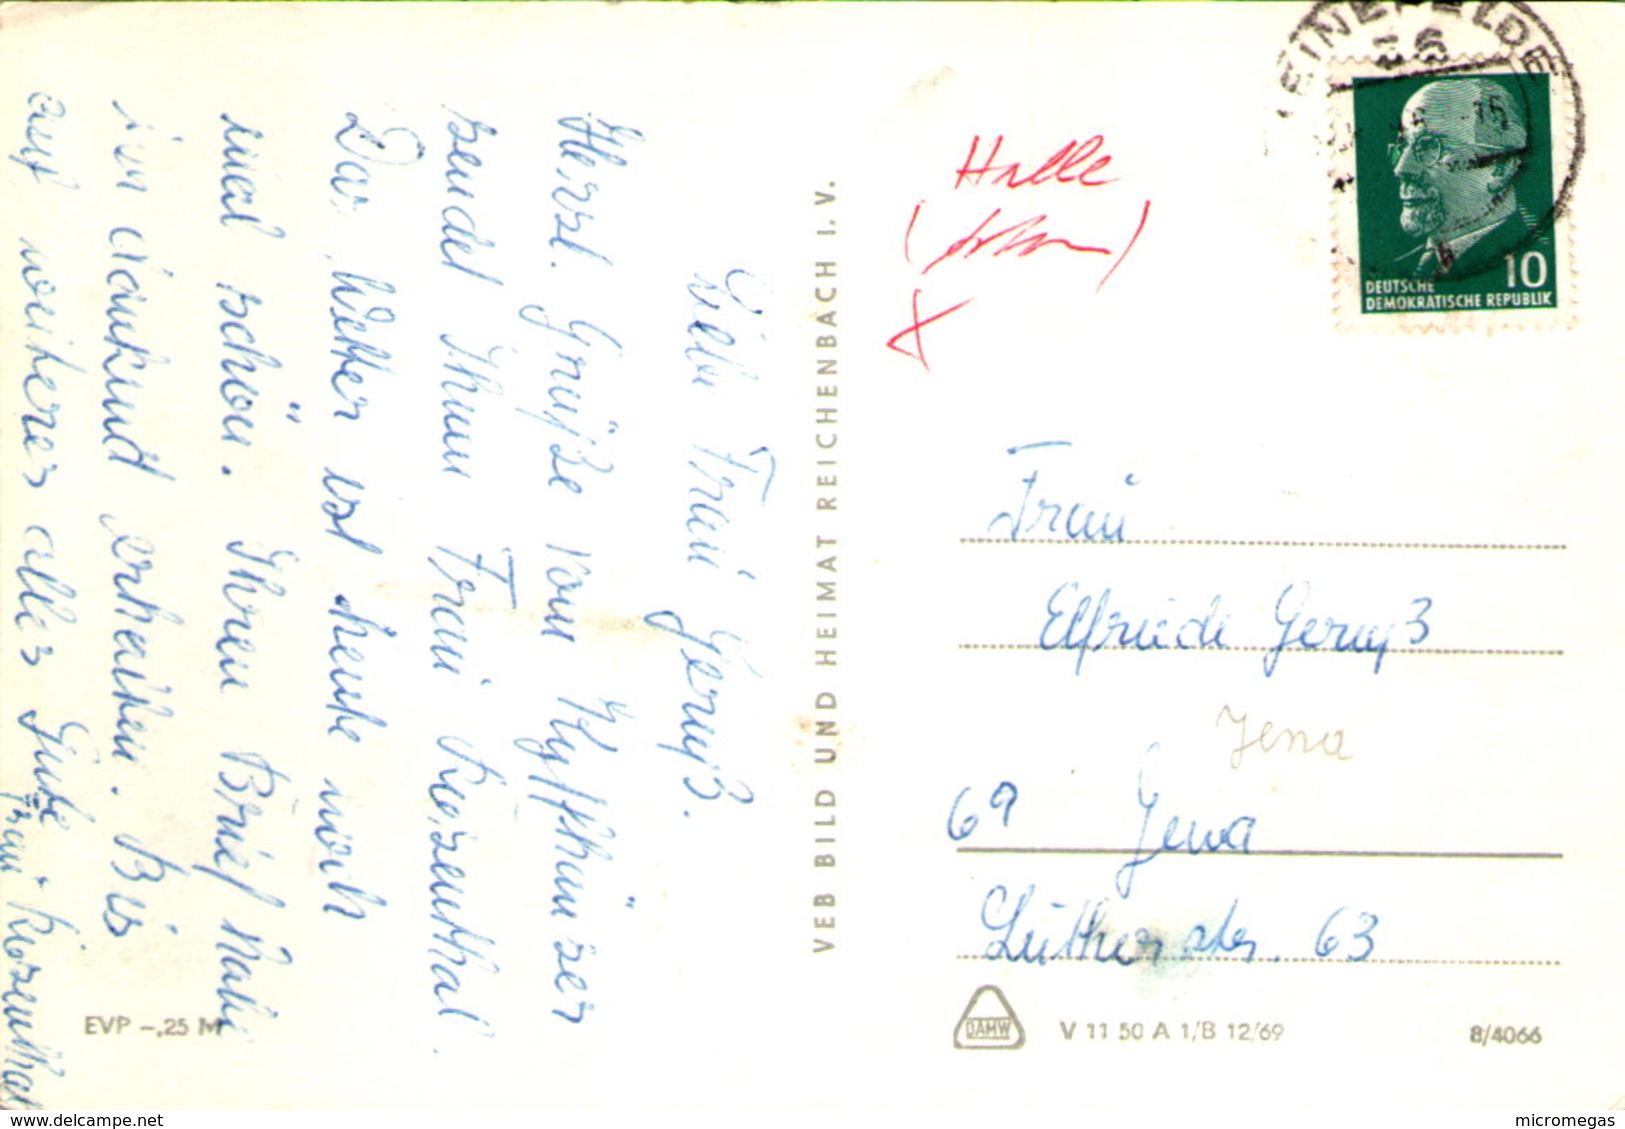 Liebe Frau Gernß.
Herzl. Grüße vom Kyffhäuser
sendet Ihnen Frau Kiesenthal.
Das Wetter ist heute noch
mal schön. Ihren Brief habe
ich dankend erhalten. Bis
auf weiteres alles Gute
Frau Kiesenthal
EVP –,25 M
VEB BILD UND HEIMAT REICHENBACH I. V.
Halle
LEINEFELDE
DEUTSCHE
DEMOKRATISCHE REPUBLIK
10
Frau
Elfriede Gernß
Jena
69 Jena
Lutherstr. 63
DAMW
V 11 50 A 1/B 12/69
8/4066
www.delcampe.net
micromegas